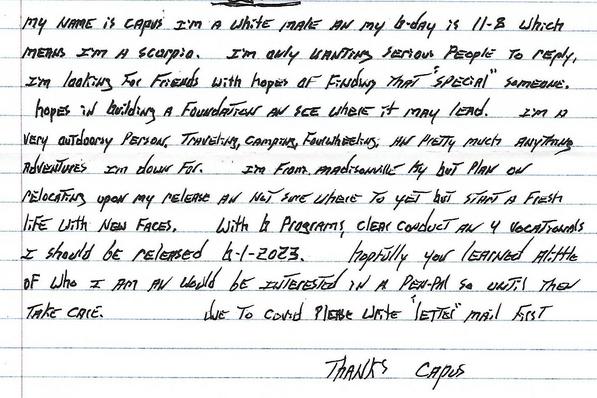 My NAME is CAPUS I'm A White MALE AN My b-day is 11-8 Which
MEANS I'm A SCORPIO. I'm only WANTING SERIOUS PEOPLE TO REPLY,
I'm looking For Friends with hopes OF FINDING THAT "SPECIAL" SOMEONE.
hopes in building A FOUNDATION AN SEE WHERE it MAY LEAD. I'm A
VERY OUTDOORSY PERSON, TRAVELING, CAMPING, FOURWHEELING, AN PRETTY MUCH ANYTHING
ADVENTURES I'm DOWN FOR. I'm FROM MADISONVILLE Ky but PLAN ON
RELOCATING UPON MY RELEASE AN NOT SURE WHERE TO YET but START A FRESH
LIFE WITH NEW FACES. With 6 PROGRAMS, CLEAR CONDUCT AN 4 VOCATIONALS
I should be RELEASED 6-1-2023. hopfully you LEARNED Alittle
OF Who I AM AN Would BE INTERESTED IN A PEN-PAL SO UNTIL THEN
TAKE CARE. DUE TO COVID PLEASE WRITE "LETTER" MAIL FIRST
THANKS CAPUS